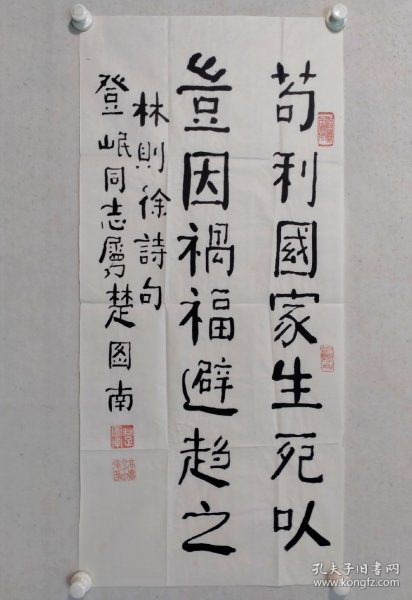 苟利國家生死以
豈因禍福避趋之
林則徐詩句
登岷同志属楚图南
孔夫子旧书网
www.kongfz.com